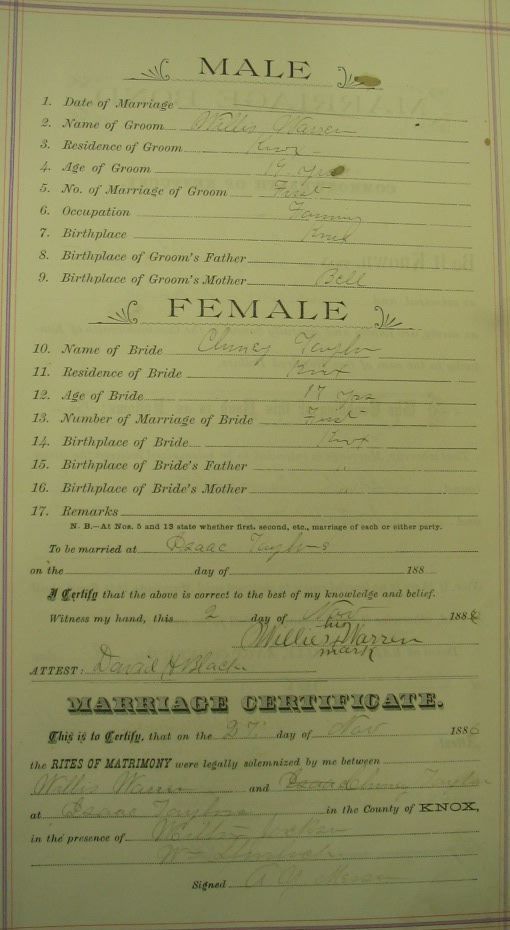 MALE
1. Date of Marriage
2. Name of Groom Willis Warren
3. Residence of Groom Knox
4. Age of Groom 19 yrs
5. No. of Marriage of Groom First
6. Occupation Farming
7. Birthplace Knox
8. Birthplace of Groom's Father
9. Birthplace of Groom's Mother Bell
FEMALE
10. Name of Bride Taylor
11. Residence of Bride Knox
12. Age of Bride 17 yrs
13. Number of Marriage of Bride First
14. Birthplace of Bride Knox
15. Birthplace of Bride's Father "
16. Birthplace of Bride's Mother "
17. Remarks
N. B.—At Nos. 5 and 13 state whether first, second, etc., marriage of each or either party.
To be married at Isaac Taylors
on the day of 188
I Certify that the above is correct to the best of my knowledge and belief.
Witness my hand, this 2 day of Nov 188
his
Willis x Warren
mark
ATTEST: David H Black
MARRIAGE CERTIFICATE.
This is to Certify, that on the 2 day of Nov 1886
the RITES OF MATRIMONY were legally solemnized by me between
Willis Warren and Taylor
at Isaac Taylors in the County of KNOX,
in the presence of
Wm
Signed